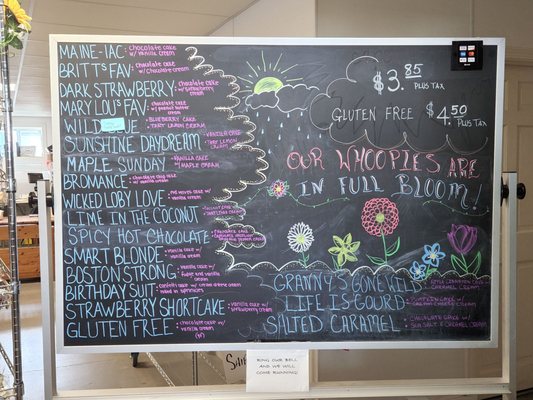 MAINE-IAC: chocolate cake
w/ vanilla cream
BRITT'S FAV: chocolate cake
w/ chocolate cream
DARK STRAWBERRY: chocolate cake
w/ strawberry
cream
MARY LOU'S FAV: chocolate cake
w/ peanut butter
cream
WILD BLUE BLUEBERRY CAKE
TART LEMON CREAM
SUNSHINE DAYDREAM: VANILLA CAKE
TART LEMON
CREAM
MAPLE SUNDAY VANILLA CAKE
w/ MAPLE CREAM
BROMANCE: chocolate cake
w/ vanilla cream
WICKED LOBY LOVE red velvet cake w/
vanilla cream
LIME IN THE COCONUT
SPICY HOT CHOCOLATE
SMART BLONDE vanilla cake w/
vanilla cream
BOSTON STRONG vanilla cake w/
BIRTHDAY SUIT: confetti cake w/ cream cheese cream
rolled in sprinkles
STRAWBERRY SHORTCAKE vanilla cake w/
strawberry cream
GLUTEN FREE chocolate cake w/
vanilla cream
$3.85
PLUS TAX
GLUTEN FREE $4.50
PLUS TAX
OUR WHOOPIES ARE
IN FULL BLOOM!
GRANNY'S GONE WILD
CARAMEL CREAM
LIFE IS GOURD PUMPKIN CAKE w/
CREAM CHEESE CREAM
SALTED CARAMEL CHOCOLATE CAKE w/
SEA SALT & CARAMEL CREAM
RING OUR BELL
AND WE WILL
COME RUNNING!